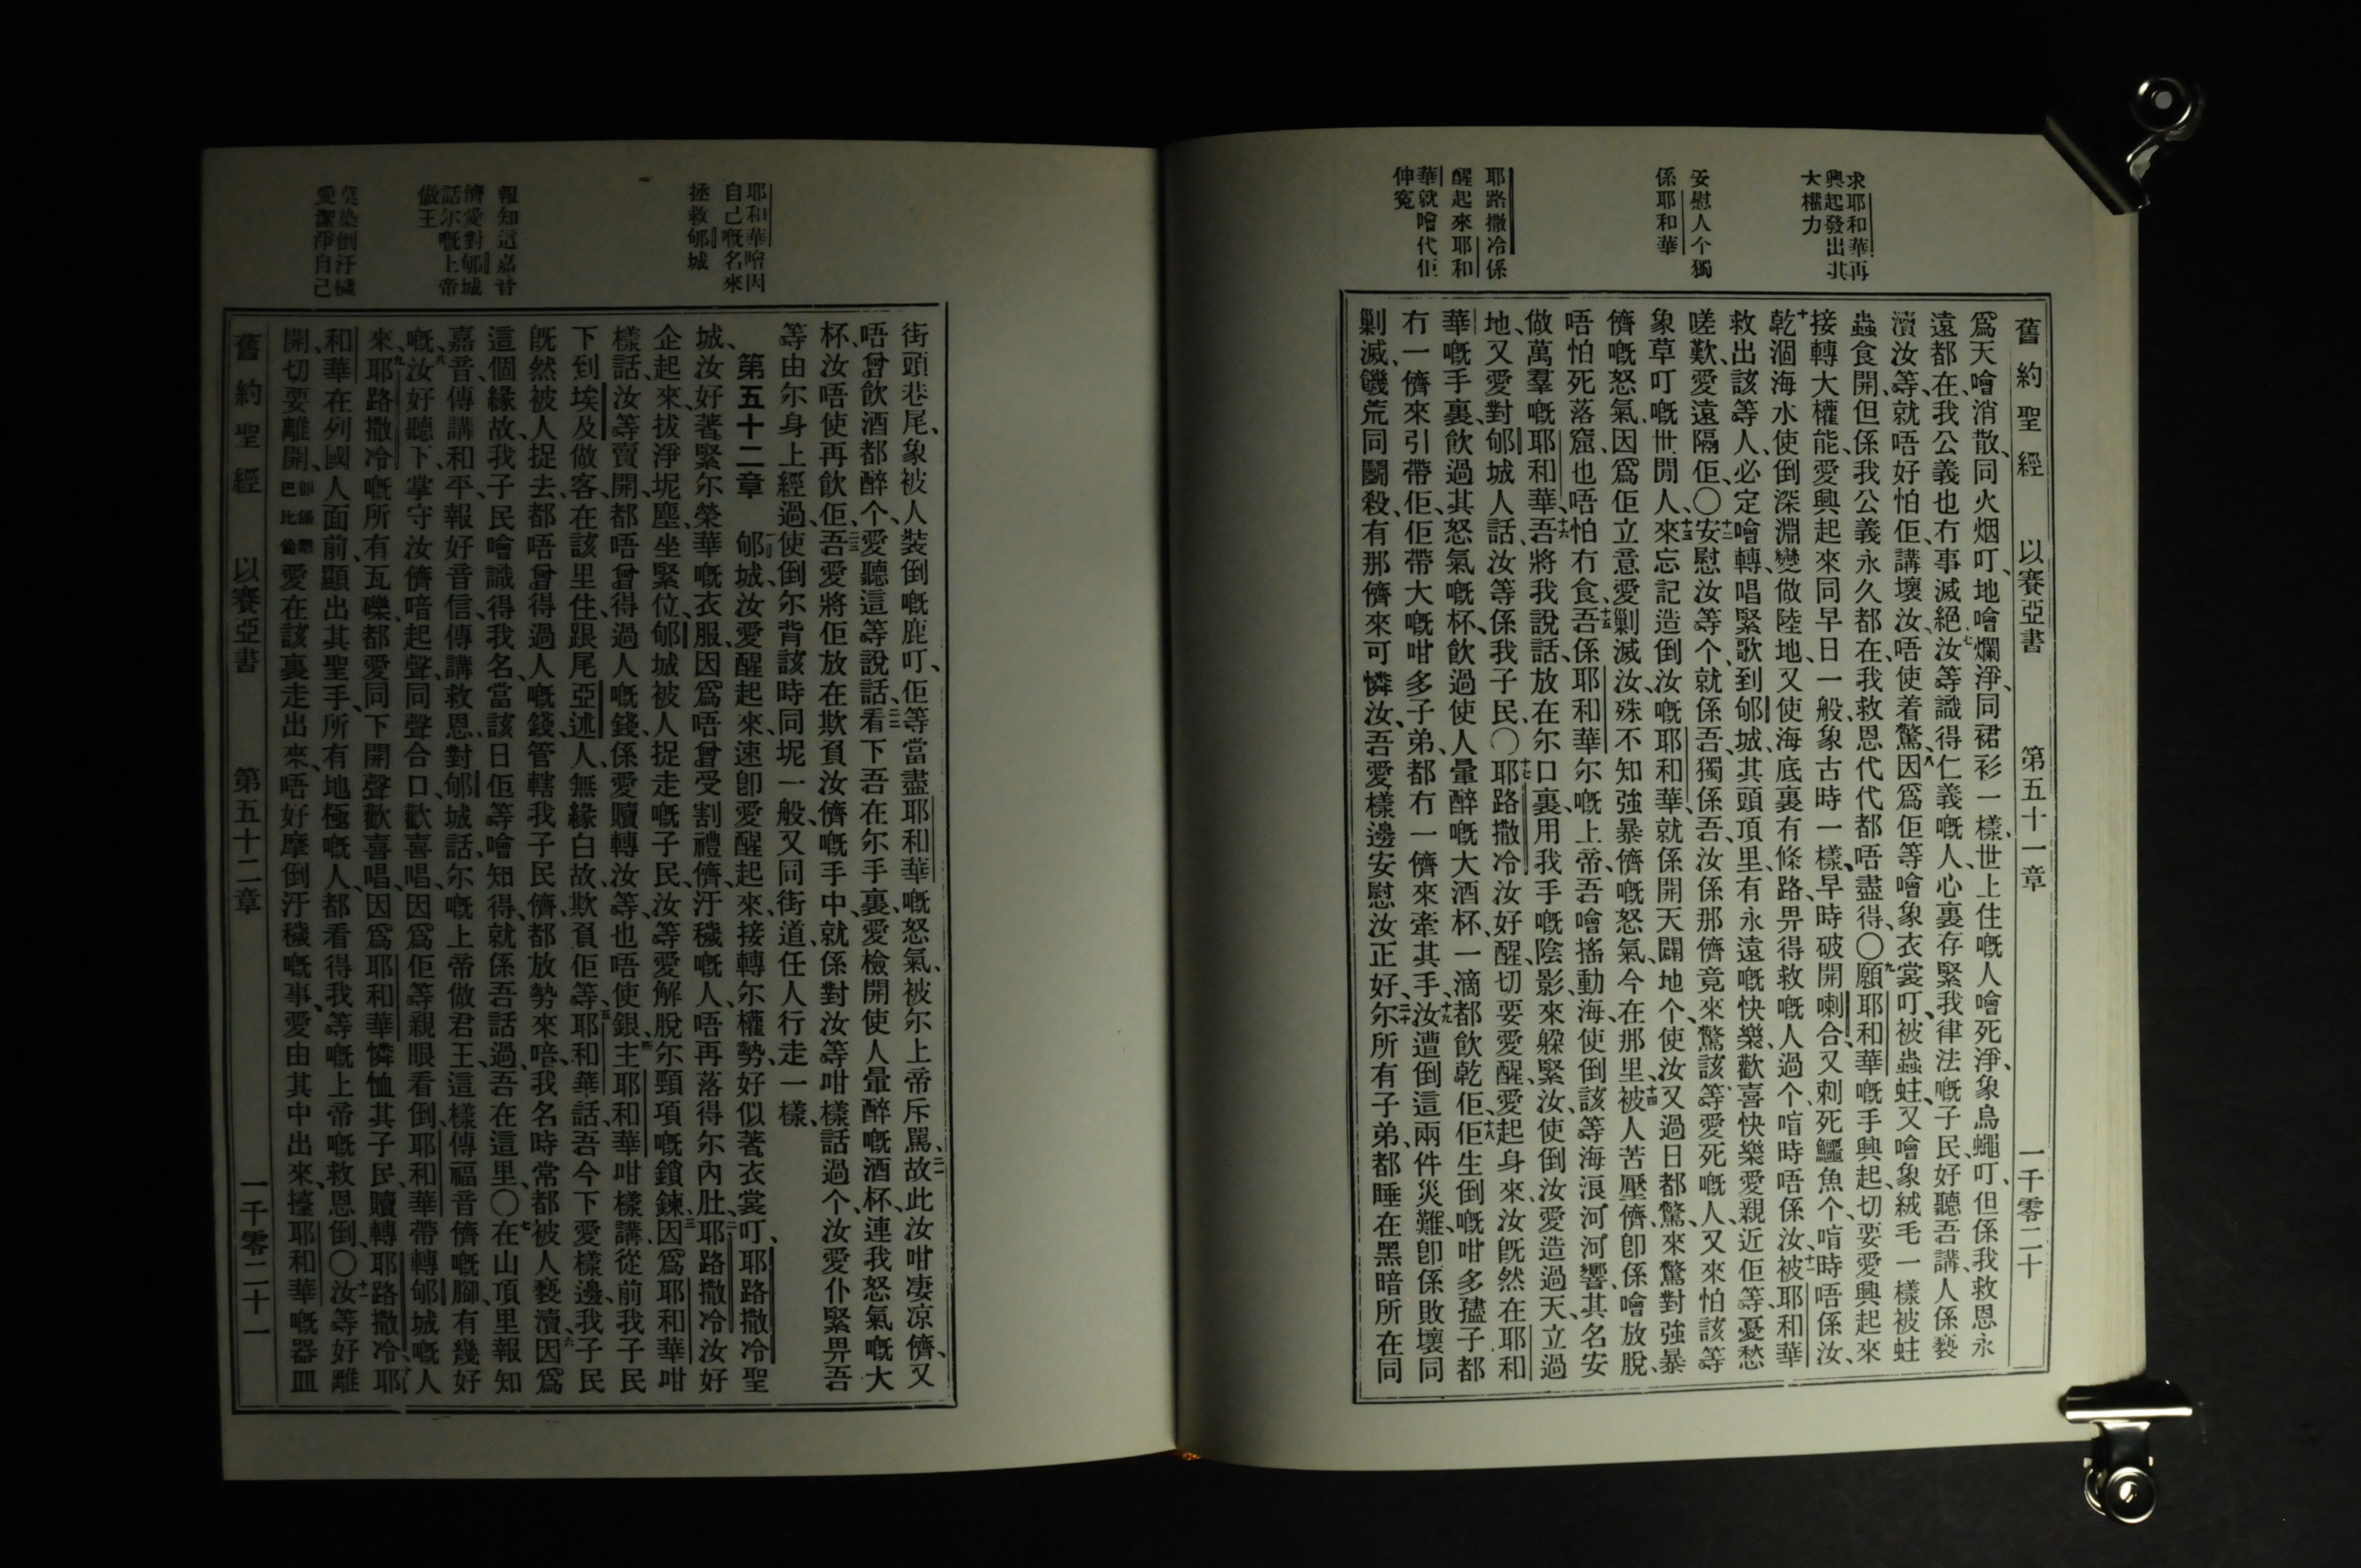 舊約聖經 以賽亞書 第五十一章 一千零二十
求耶和華再
興起發出其
大權力
安慰人个獨
係耶和華
耶路撒冷係
醒起來耶和
華就噲代佢
伸寃
爲天噲消散、同火烟叮、地噲爛淨、同裙衫一樣、世上住嘅人噲死淨、象烏蠅叮、但係我救恩永
遠都在、我公義也冇事滅絕、七汝等識得仁義嘅人、心裏存緊我律法嘅子民、好聽吾講、人係褻
瀆汝等、就唔好怕佢、講壞汝、唔使着驚、八因爲佢等噲象衣裳叮、被蟲蛀、又噲象絨毛一樣被蛀
蟲食開、但係我公義永久都在、我救恩代代都唔盡得、〇九願耶和華嘅手興起、切要愛興起來
接轉大權能、愛興起來同早日一般、象古時一樣、早時破開喇合、又刺死鱷魚个、啃時唔係汝、
十乾涸海水、使倒深淵變做陸地、又使海底裏有條路、畀得救嘅人過个、啃時唔係汝、十一被耶和華
救出該等人、必定噲轉、唱緊歌到郇城、其頭頂里有永遠嘅快樂、歡喜快樂愛親近佢等、憂愁
嗟歎、愛遠隔佢、〇十二安慰汝等个、就係吾、獨係吾、汝係那儕、竟來驚該等愛死嘅人、又來怕該等
象草叮嘅世間人、十三來忘記造倒汝嘅耶和華、就係開天闢地个、使汝又過日都驚、來驚對強暴
儕嘅怒氣、因爲佢立意愛剿滅汝、殊不知強暴儕嘅怒氣、今在那里、十四被人苦壓儕、即係噲放脫、
唔怕死落窟、也唔怕冇食、十五吾係耶和華尔嘅上帝、吾噲搖動海、使倒該等海浪河河響、其名安
做萬羣嘅耶和華、十六吾將我說話、放在尔口裏、用我手嘅陰影、來躲緊汝、使倒汝愛造過天、立過
地、又愛對郇城人話、汝等係我子民、〇十七耶路撒冷汝好醒、切要愛醒、愛起身來、汝既然在耶和
華嘅手裏、飲過其怒氣嘅杯、飲過使人暈醉嘅大酒杯、一滴都飲乾佢、十八佢生倒嘅咁多孻子都
冇一儕來引帶佢、佢帶大嘅咁多子弟、都冇一儕來牽其手、十九汝遭倒這兩件災難、即係敗壞同
剿滅、饑荒同鬭殺、有那儕來可憐汝、吾愛樣邊安慰汝正好、二十尔所有子弟、都睡在黑暗所在、同
耶和華噲因
自己嘅名來
拯救郇城
報知這嘉音
儕愛對郇城
話尔嘅上帝
做王
莫染倒汙穢
愛潔淨自己
街頭巷尾、象被人裝倒嘅鹿叮、佢等當盡耶和華嘅怒氣、被尔上帝斥罵、二一故此汝咁凄凉儕、又
唔曾飲酒都醉个、愛聽這等說話、二二看下吾在尔手裏、愛檢開使人暈醉嘅酒杯、連我怒氣嘅大
杯、汝唔使再飲佢、二三吾愛將佢放在欺負汝儕嘅手中、就係對汝等咁樣話過个、汝愛仆緊畀吾
等由尔身上經過、使倒尔背該時同坭一般、又同街道、任人行走一樣、
第五十二章 一郇城、汝愛醒起來、速卽愛醒起來、接轉尔權勢、好似著衣裳叮、耶路撒冷聖
城、汝好著緊尔榮華嘅衣服、因爲唔曾受割禮儕、汙穢嘅人、唔再落得尔內肚、二耶路撒冷汝好
企起來、拔淨坭塵、坐緊位、郇城被人捉走嘅子民、汝等愛解脫尔頸項嘅鎖鍊、三因爲耶和華咁
樣話、汝等賣開、都唔曾得過人嘅錢、係愛贖轉汝等、也唔使銀、四主耶和華咁樣講、從前我子民
下到埃及做客、在該里住、跟尾亞述人、無緣白故、欺負佢等、五耶和華話、吾今下愛樣邊、我子民
旣然被人捉去、都唔曾得過人嘅錢、管轄我子民儕、都放勢來喑、我名時常都被人褻瀆、六因爲
這個緣故、我子民噲識得我名、當該日佢等噲知得、就係吾話過、吾在這里、〇七在山頂里報知
嘉音、傳講和平、報好音信、傳講救恩、對郇城話、尔嘅上帝做君王、這樣傳福音儕嘅腳、有幾好
嘅、八汝好聽下、掌守汝儕喑起聲、同聲合口、歡喜唱、因爲佢等親眼看倒、耶和華帶轉郇城嘅人
來、九耶路撒冷嘅所有瓦礫、都愛同下開聲歡喜唱、因爲耶和華憐恤其子民、贖轉耶路撒冷、十耶
和華在列國人面前、顯出其聖手、所有地極嘅人、都看得我等嘅上帝嘅救恩倒、〇十一汝等好離
開、切要離開、卽係離巴比倫愛在該裏走出來、唔好摩倒汙穢嘅事、愛由其中出來、擡耶和華嘅器皿
舊約聖經 以賽亞書 第五十二章 一千零二十一